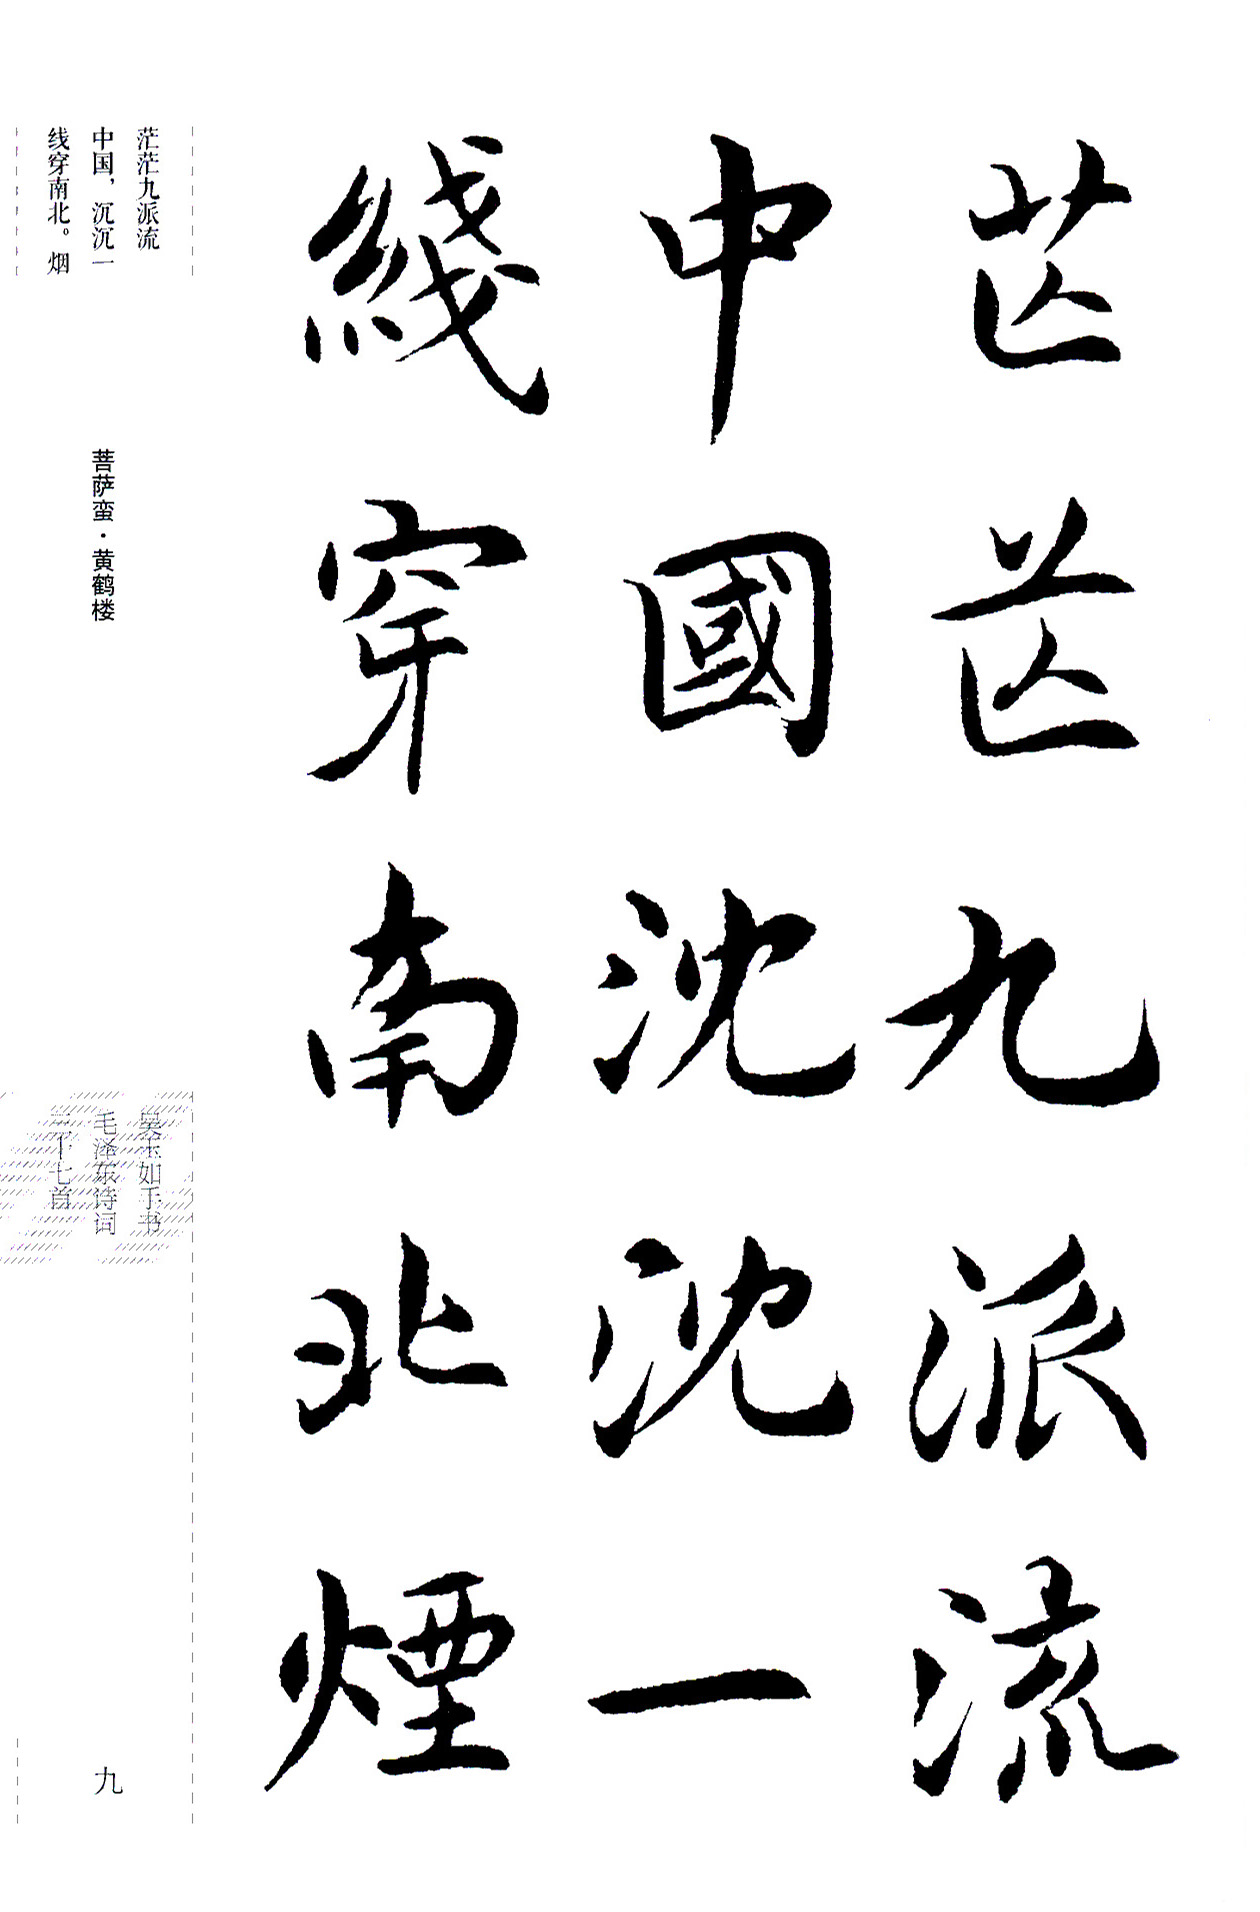 茫茫九派流
中國沈沈一
綫穿南北煙
茫茫九派流
中国，沉沉一
线穿南北。烟
菩萨蛮·黄鹤楼
吴玉如手书
毛泽东诗词
三十七首
九